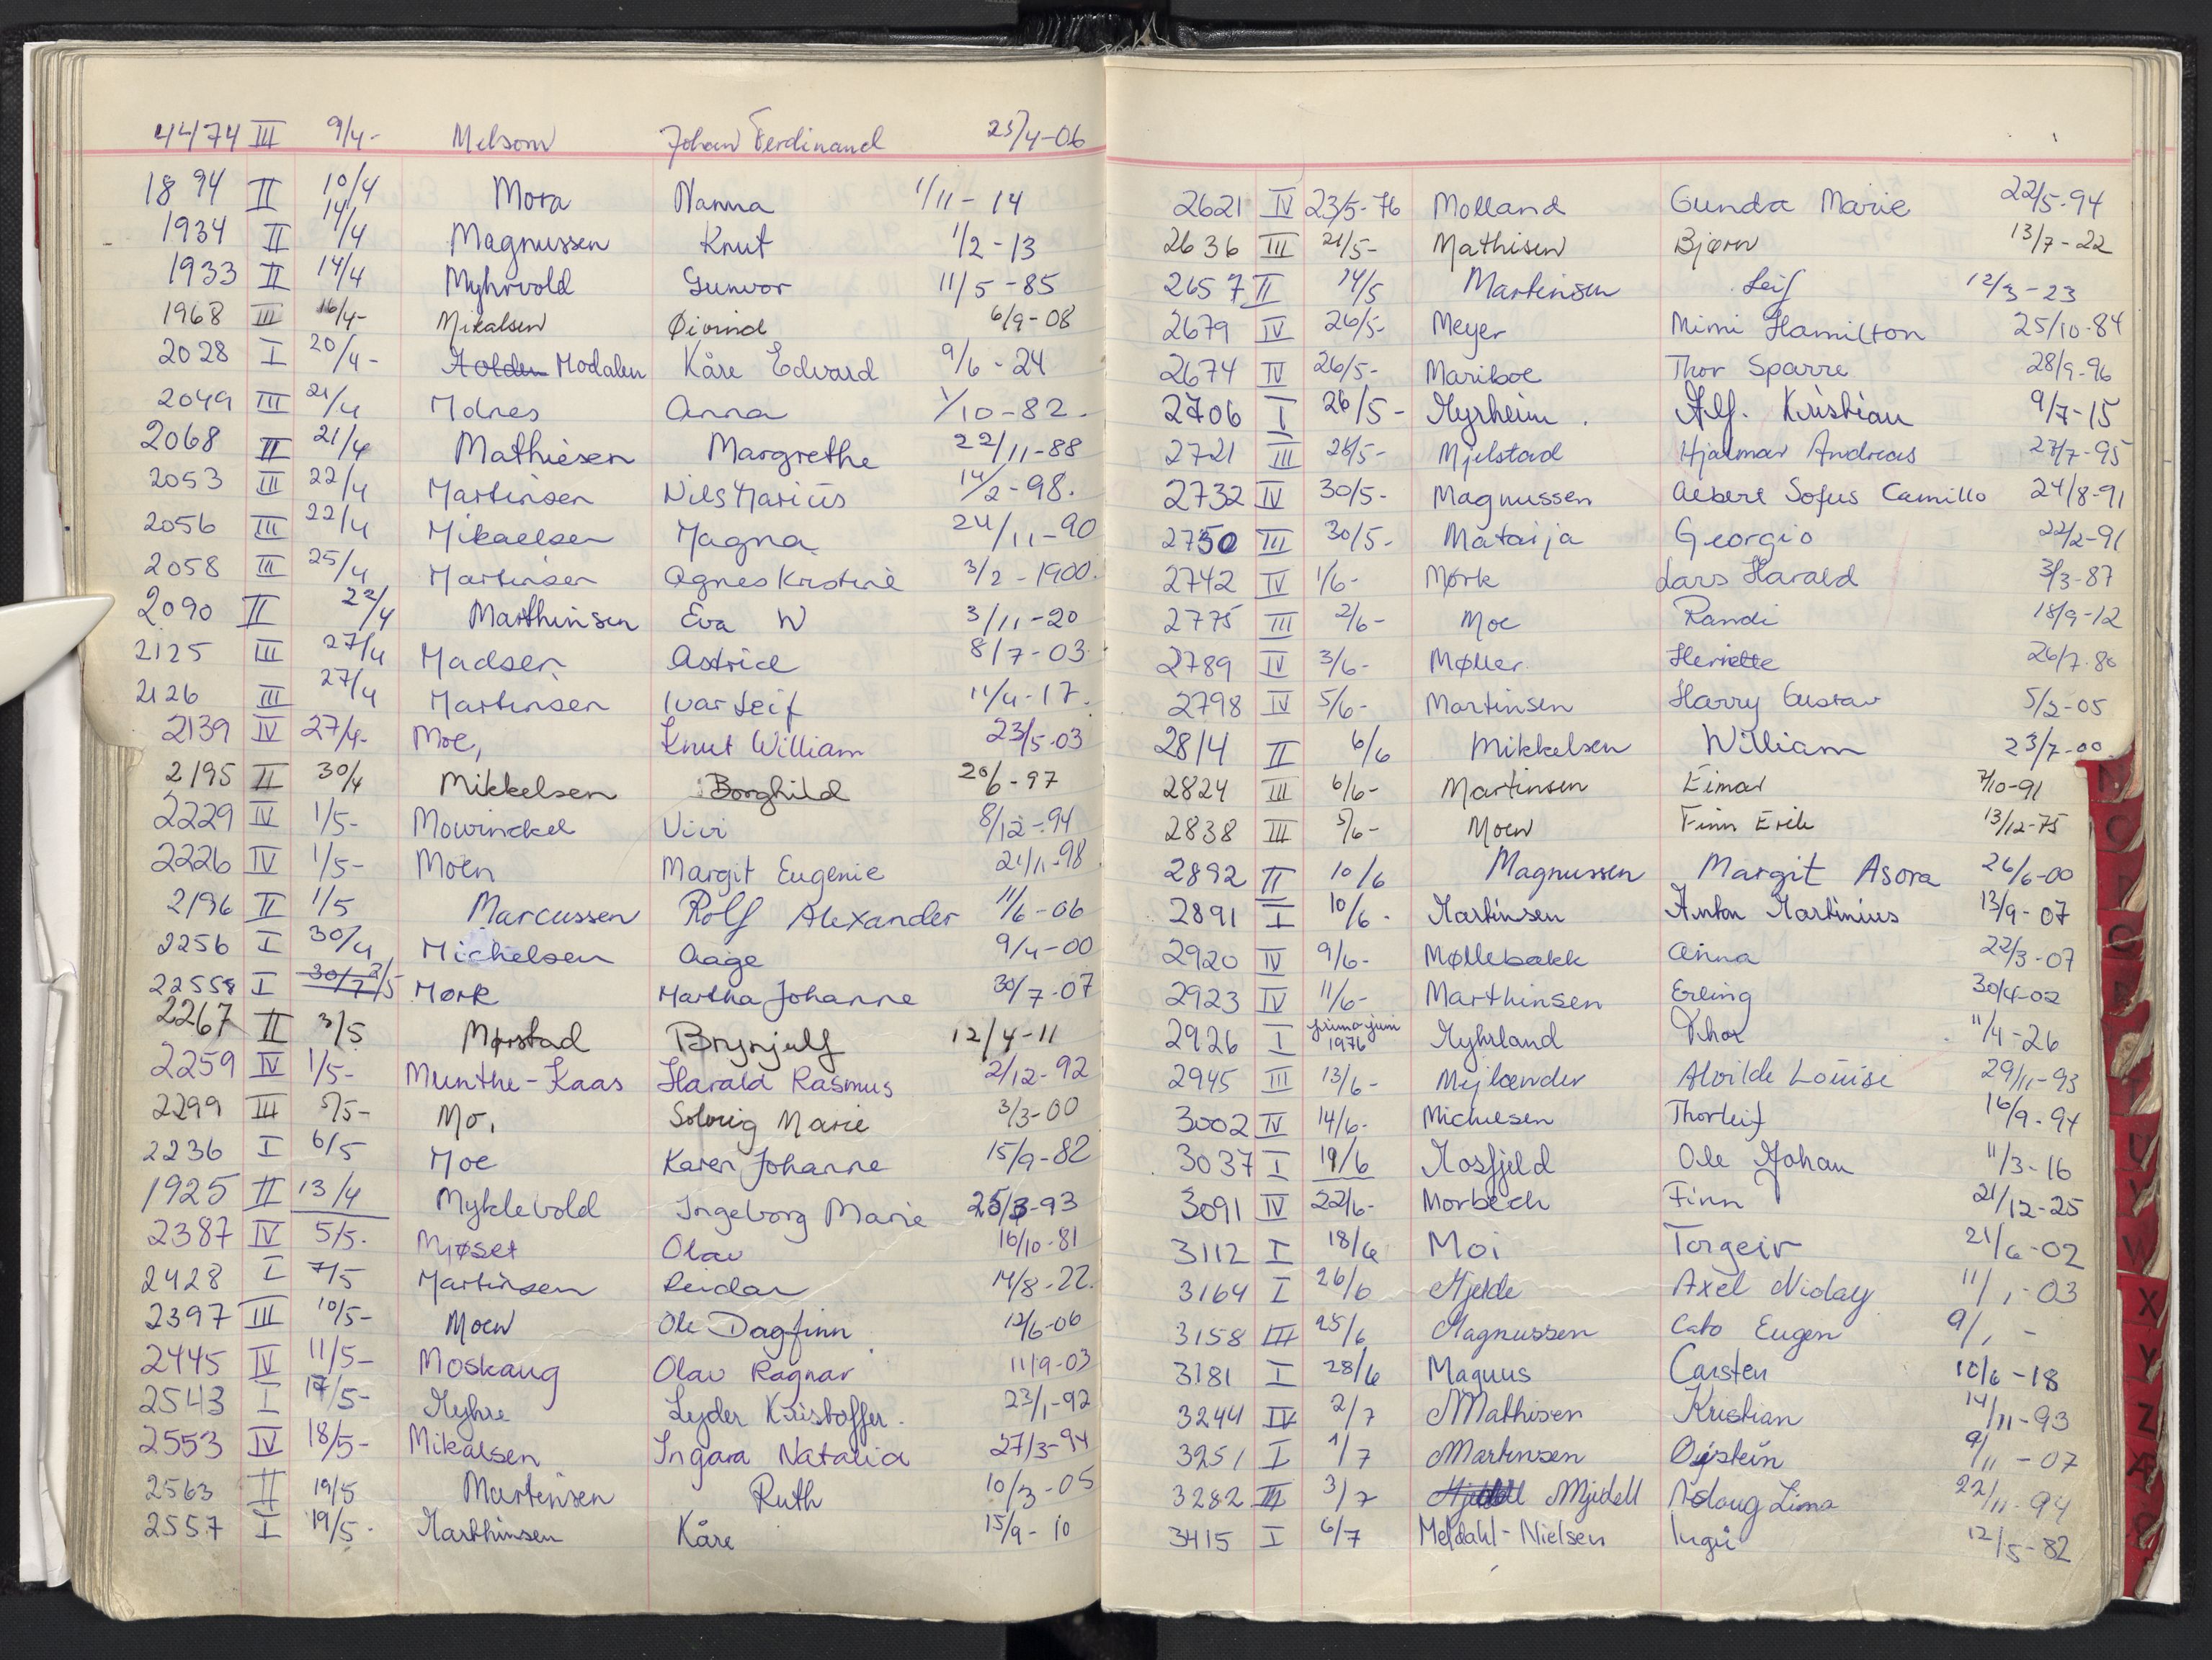 4474 III 9/4- Melsom Johan Ferdinand 23/4-06
1894 II 10/4 Mora Nanna 1/11-14
1934 II 14/4 Magnussen Knut 1/2-13
1933 II 14/4 Myhrvold Gunvor 11/5-85
1968 III 16/4- Mikalsen Øivind 6/9-08
2028 I 20/4- Holden Modalen Kåre Edvard 9/6-24
2049 III 21/4 Mdnes Anna 1/10-82.
2068 II 21/4 Mathiesen Margrethe 22/11-88
2053 III 22/4 Martinsen Nils Marius 14/2-98.
2056 III 22/4 Mikaelsen Magna 24/11-90
2058 III 25/4 Martinsen Agnes Kristine 3/2-1900.
2090 II 22/4 Marthinsen Eva W 3/11-20
2125 III 27/4 Madsen Astrid 8/7-03
2126 III 27/4 Martinsen Ivar Leif 11/4-17.
2139 IV 27/4- Moe, Knut William 23/5-03
2195 II 30/4 Mikkelsen Borghild 20/6-97
2229 IV 1/5- Mowinckel Vivi 8/12-94
2226 IV 1/5- Moen Margit Eugenie 21/11-98
2196 II 1/5 Marcussen Rolf Alexander 11/6-06
2256 I 30/4 Michelsen Aage 9/4-00
22558 I 30/7 2/5 Mørk Martha Johanne 30/7-07
2267 II 3/5 Mørstad Brynjulf 12/4-11
2259 IV 1/5- Munthe-Kaas Harald Rasmus 2/12-92
2299 III 5/5- Mo, Solveig Marie 3/3-00
2236 I 6/5 Moe Karen Johanne 15/9-82
1925 II 13/4 Myklevold Ingeborg Marie 25/3-93
2387 IV 5/5. Mjøset Olav 16/10-81
2428 I 7/5 Martinsen Reidar 14/8-22.
2397 III 10/5- Moen Ole Dagfinn 12/6-06
2445 IV 11/5- Moskaug Olav Ragnar 11/9-03
2543 I 17/5- Myhre Lyder Kristoffer. 23/1-92
2553 IV 18/5- Mikalsen Ingara Natalia 27/3-94
2563 II 19/5 Martinsen Ruth 10/3-05
2557 I 19/5. Marthinsen Kåre 15/9-10
2621 IV 23/5-76 Molland Gunda Marie 22/5-94
2636 III 21/5- Mathisen Bjørn 13/7-22
2657 II 14/5 Martinsen Leif 12/3-23
2679 IV 26/5- Meyer Mimi Hamilton 25/10-84
2674 IV 26/5- Mariboe Thor Sparre 28/9-96
2706 I 26/5- Myrheim. Alf. Kristian 9/7-15
2721 III 28/5- Mjelstad Hjalmar Andreas 27/7-95
2732 IV 30/5- Magnussen Albert Sofus Camillo 24/8-91
2750 III 30/5- Mataija Georgio 22/2-91
2742 IV 1/6- Mørk Lars Harald 3/3-87
2775 III 2/6- Moe Randi 18/9-12
2789 IV 3/6- Møller Henriette 26/7-86
2798 IV 5/6- Martinsen Harry Gustav 5/2-05
2814 II 6/6 Mikkelsen William 23/7-00
2824 III 6/6- Martinsen Eimar 7/10-91
2838 III 5/6- Moen Finn Erik 13/12-75
2892 II 10/6 Magnussen Margit Asora 26/6-00
2891 I 10/6. Martinsen Anton Martinius 13/9-07
2920 IV 9/6- Møllebakk Anna 22/3-07
2923 IV 11/6- Marthinsen Erling 30/4-02
2926 I primo juni 1976 Myhrland Thor 11/4-26
2945 III 13/6- Mejlænder Alvilde Louise 29/11-93
3002 IV 14/6- Michelsen Thorleif 16/9-94
3037 I 19/6 Mosfjeld Ole Johan 11/3-16
3091 IV 22/6- Morbech Finn 21/12-25
3112 I 18/6 Moi Torgeir 21/6-02
3164 I 26/6 Mjelde Axel Nicolay 11/1-03
3158 III 25/6 Magnussen Cato Eugen 9/1-
3181 I 28/6 Magnus Carsten 10/6-18
3244 IV 2/7 Mathisen Kristian 14/11-93
3251 I 1/7 Martinsen Øystein 9/11-07
3282 III 3/7 Mjidell 22/11-94
3415 I 6/7 Meldahl-Nielsen 12/5-82